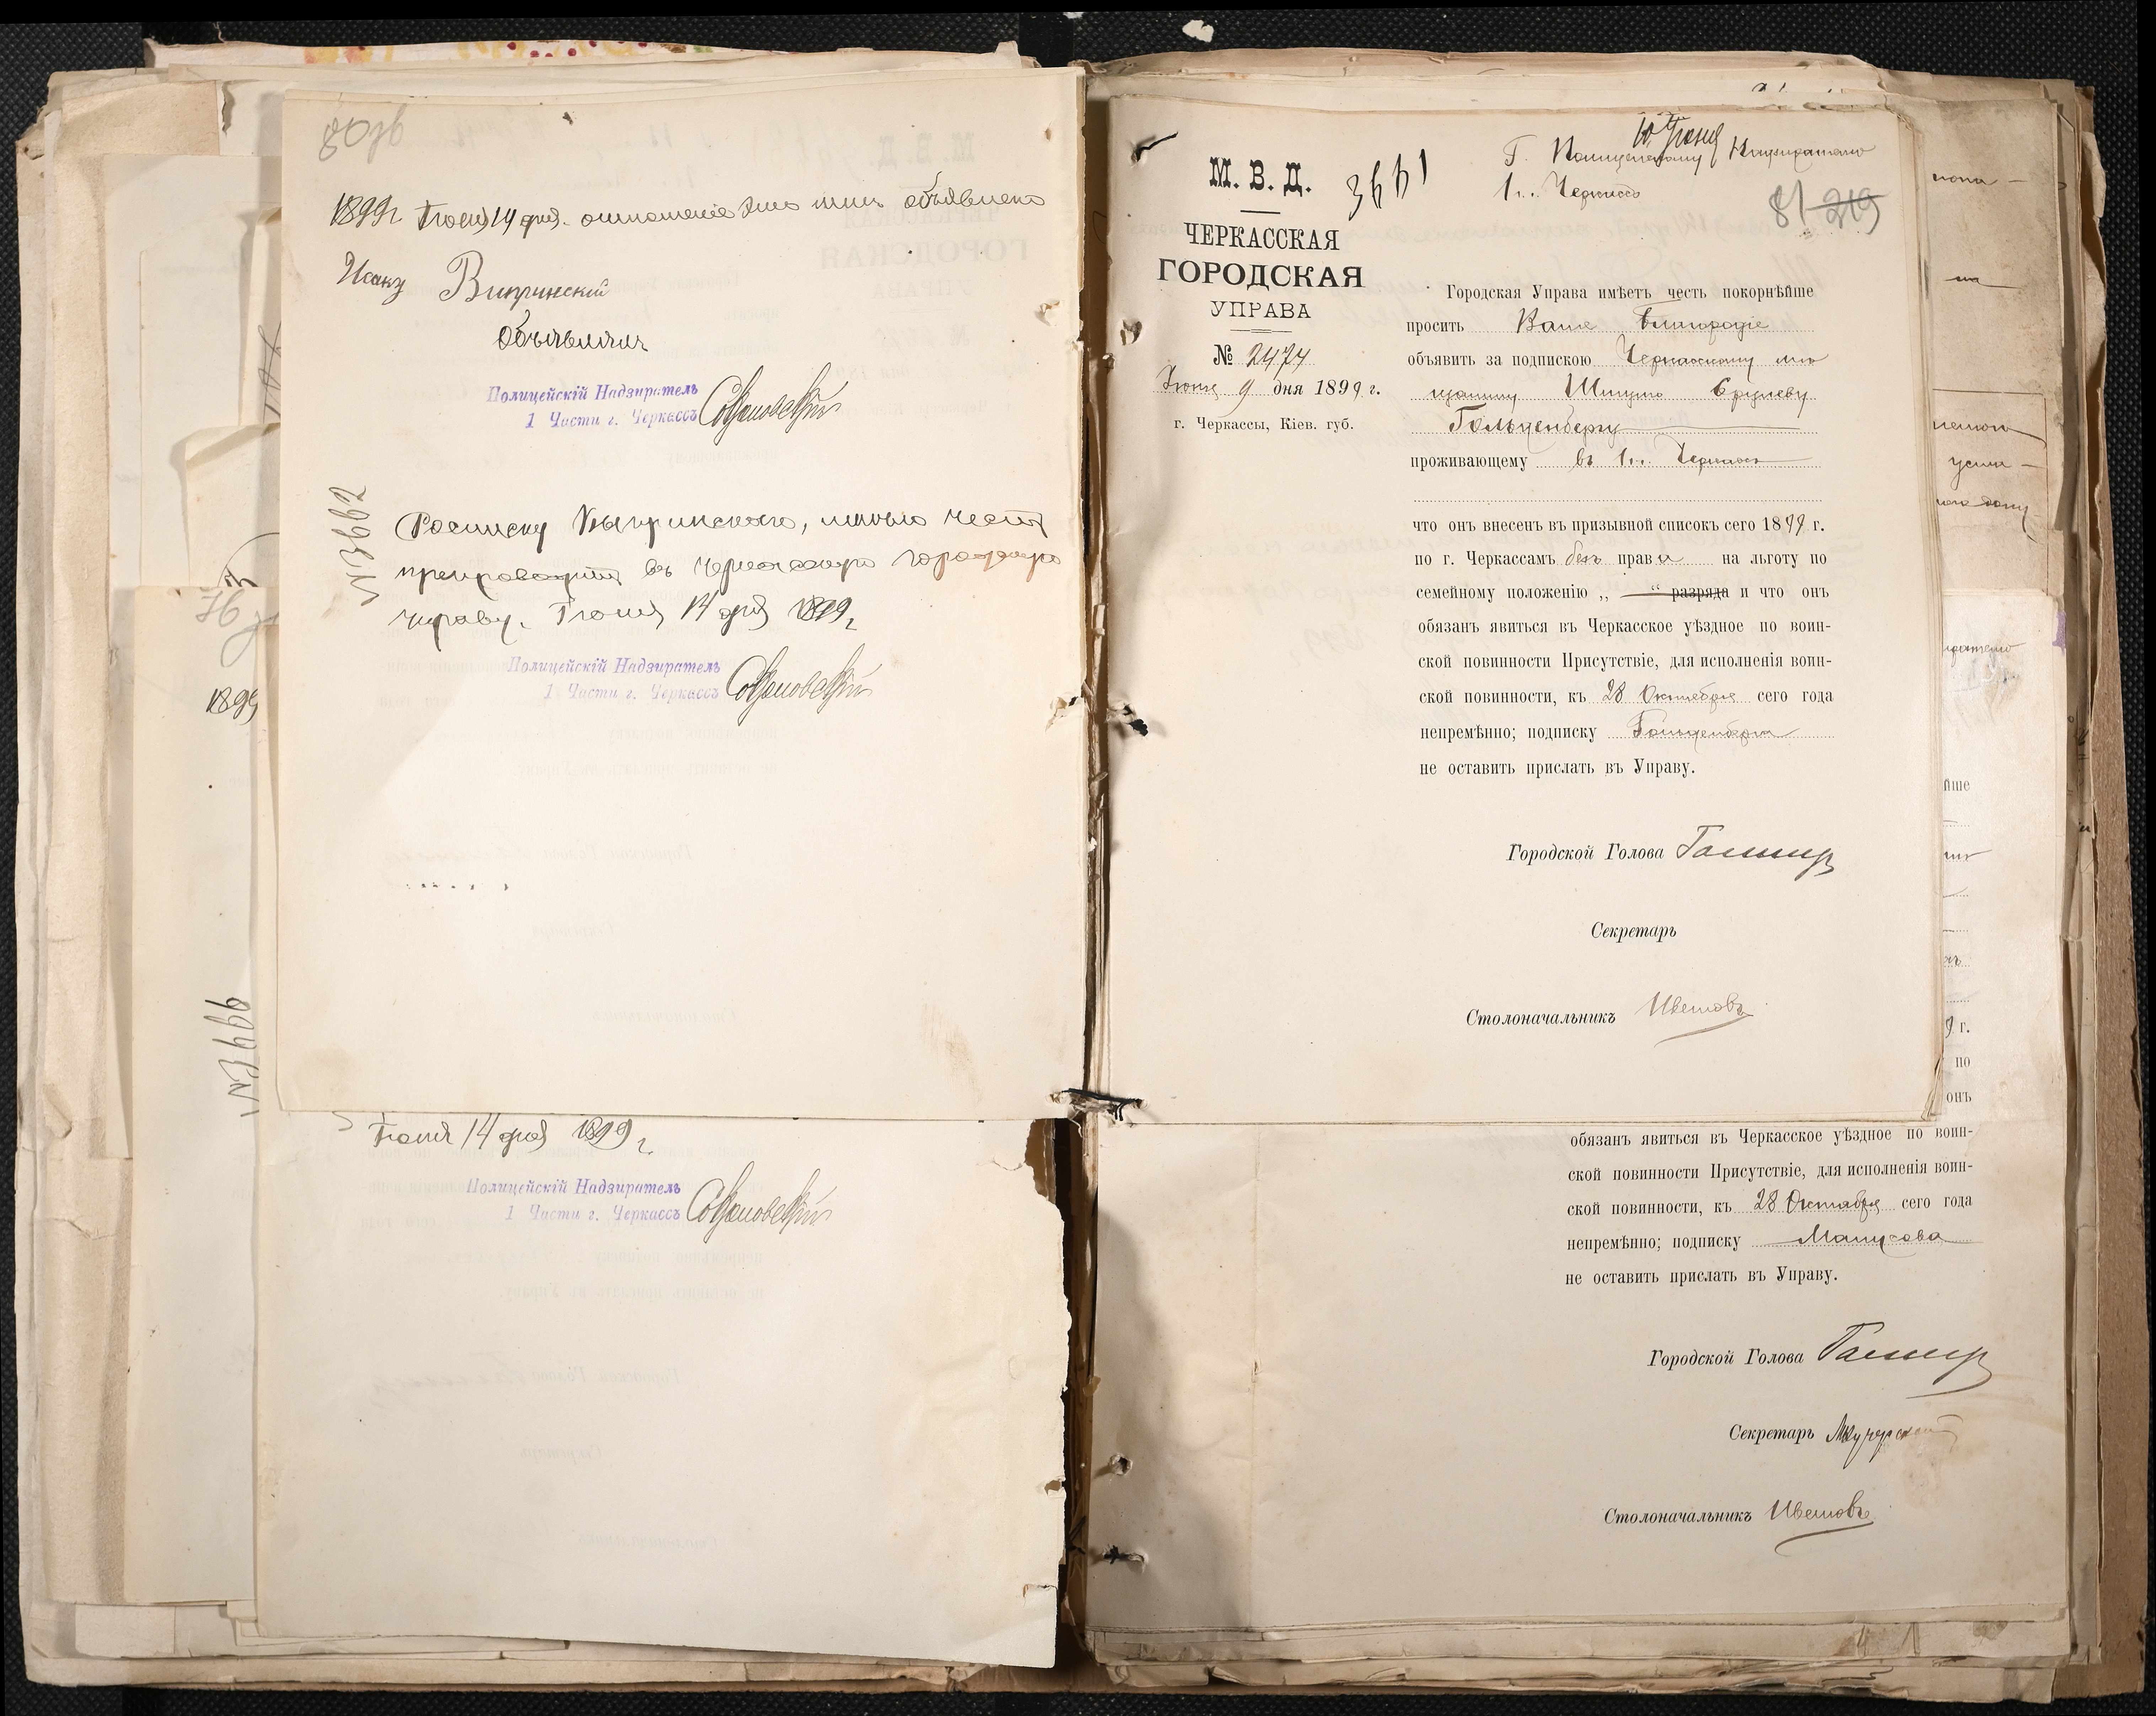 80 об
1899 г. Іюня 14 дня. отношеніе это мною объявлено
Исаку Випринскій
Объявилъ
Полицейскій Надзиратель
1 Части г. Черкассъ
№ 3662
Росписку Выпринскаго, имѣю честь
препроводить въ Черкасскую городскую
управу. Іюня 14 дня 1899 г.
Полицейскій Надзиратель
1 Части г. Черкассъ
1899
Іюня 14 дня 1899 г.
Полицейскій Надзиратель
1 Части г. Черкассъ
10 Іюня
Г. Полицейскому Надзирателю
1 ч. Черкассъ
81 219
М. В. Д.
3661
ЧЕРКАССКАЯ
ГОРОДСКАЯ
УПРАВА
№ 2474
Іюня 9 дня 1899 г.
г. Черкассы, Кіев. губ.
Городская Управа имѣетъ честь покорнѣйше
просить Ваше Благородіе
объявить за подпискою Черкасскому мѣ
щанину Сруліеву
Гольденбергу
проживающему въ 1 ч. Черкассъ
что онъ внесенъ въ призывной списокъ сего 1899 г.
по г. Черкассамъ безъ права на льготу по
семейному положенію „ “ разряда и что онъ
обязанъ явиться въ Черкасское уѣздное по воин-
ской повинности Присутствіе, для исполненія воин-
ской повинности, къ 28 Октября сего года
непремѣнно; подписку Гольденберга
не оставить прислать въ Управу.
Городской Голова
Секретарь
Столоначальникъ
обязанъ явиться въ Черкасское уѣздное по воин-
ской повинности Присутствіе, для исполненія воин-
ской повинности, къ 28 Октября сего года
непремѣнно; подписку Манусова
не оставить прислать въ Управу.
Городской Голова
Секретарь
Столоначальникъ
йше
г.
по
онъ